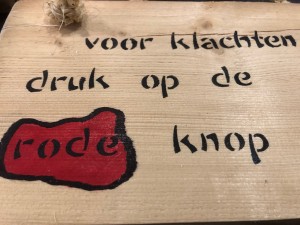 voor klachten
druk op de
rode knop